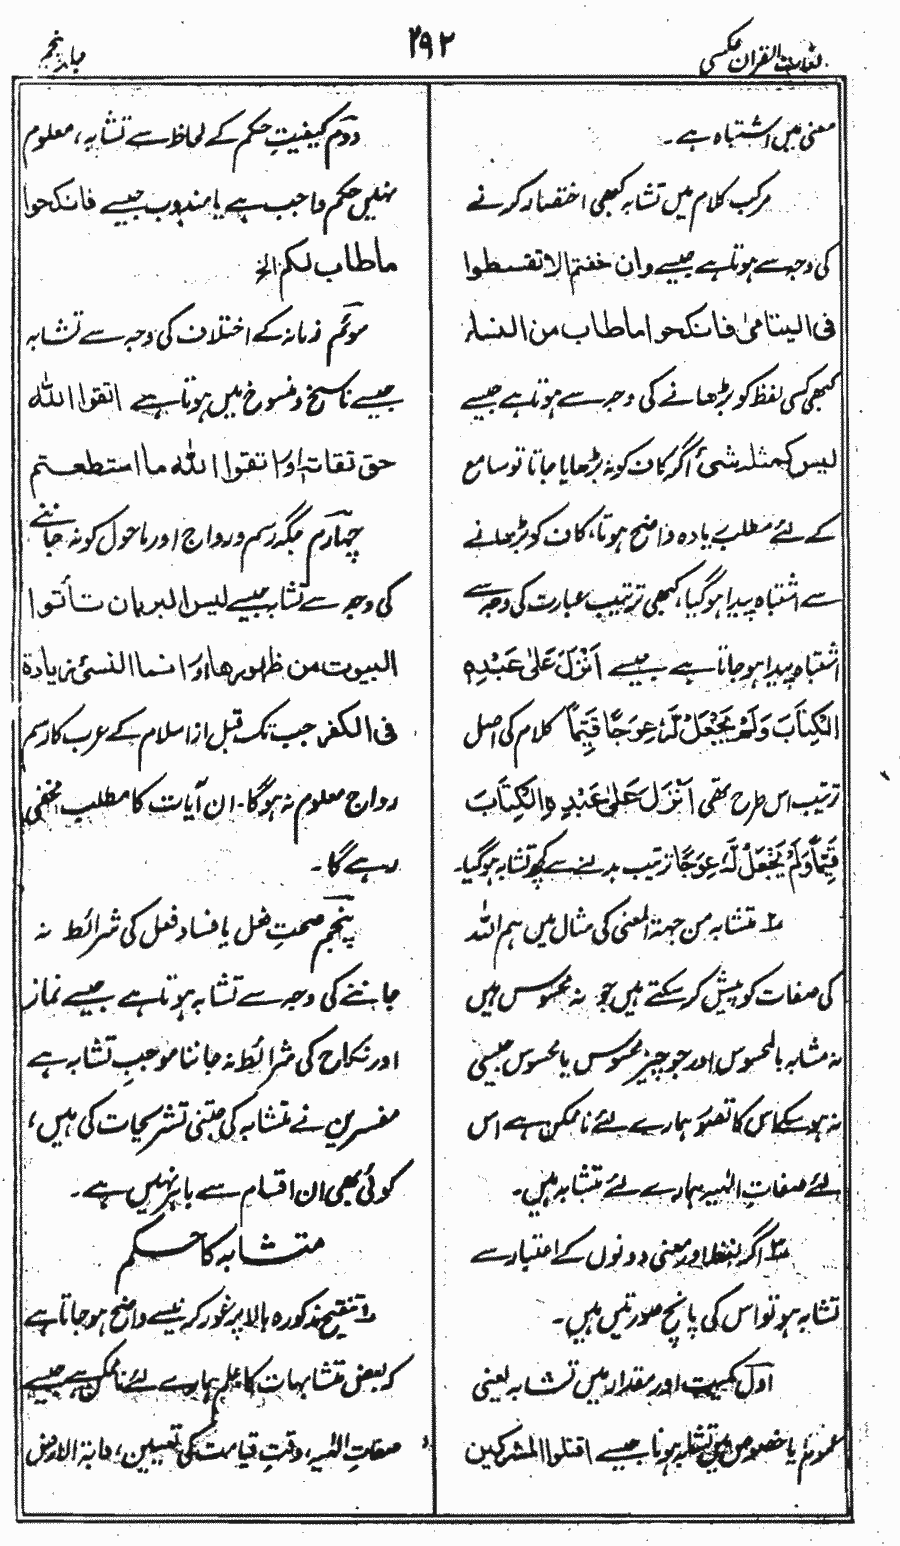 لغات القرآن عکسی
۲۹۲
جلد پنجم
معنی میں اشتباہ ہے۔
مرکب کلام میں تشابہ کبھی اختصار کرنے
کی وجہ سے ہوتا ہے جیسے وان خفتم الا تقسطوا
فی الیتامیٰ فانکحوا ما طاب من النساء
کبھی کسی لفظ کو بڑھانے کی وجہ سے ہوتا ہے جیسے
لیس کمثلہ شئ اگر کاف کو نہ بڑھایا جاتا تو سامع
کے لئے مطلب زیادہ واضح ہوتا، کاف کو بڑھانے
سے اشتباہ پیدا ہو گیا، کبھی ترتیب عبارت کی وجہ سے
اشتباہ پیدا ہو جاتا ہے جیسے اَنْزَلَ عَلیٰ عَبْدِہِ
الْکِتَابَ وَلَمْ یَجْعَلْ لَّہٗ عِوَجًا قَیِّمًا کلام کی اصل
ترتیب اس طرح تھی اَنْزَلَ عَلیٰ عَبْدِہِ الْکِتَابَ
قَیِّمًا وَلَمْ یَجْعَلْ لَّہٗ عِوَجًا ترتیب بدلنے سے کچھ تشابہ ہو گیا۔
۲ متشابہ من جہۃ المعنی کی مثال میں ہم اللہ
کی صفات کو پیش کر سکتے ہیں جو نہ محسوس ہیں
نہ مشابہ بالمحسوس اور جو چیز محسوس یا محسوس جیسی
نہ ہو سکے اس کا تصور ہمارے لئے ناممکن ہے اس
لئے صفاتِ الٰہیہ ہمارے لئے متشابہ ہیں۔
۳ اگر لفظ اور معنی دونوں کے اعتبار سے
تشابہ ہو تو اس کی پانچ صورتیں ہیں۔
اول کمیت اور مقدار میں تشابہ یعنی
عموم یا خصوص میں تشابہ ہونا جیسے اقتلوا المشرکین
دوم کیفیتِ حکم کے لحاظ سے تشابہ، معلوم
نہیں حکم واجب ہے یا مندوب جیسے فانکحوا
ما طاب لکم الخ
سوم زمانہ کے اختلاف کی وجہ سے تشابہ
جیسے ناسخ و منسوخ میں ہوتا ہے اتقوا اللہ
حق تقاتہ اور اتقوا اللہ ما استطعتم
چہارم جگہ رسم و رواج اور ماحول کو نہ جاننے
کی وجہ سے تشابہ جیسے لیس البر بان تأتوا
البیوت من ظہورہا اور انما النسئ زیادۃ
فی الکفر جب تک قبل از اسلام کے عرب کا رسم
رواج معلوم نہ ہوگا۔ ان آیات کا مطلب مخفی
رہے گا۔
پنجم صحتِ فعل یا فسادِ فعل کی شرائط نہ
جاننے کی وجہ سے تشابہ ہوتا ہے جیسے نماز
اور نکاح کی شرائط نہ جاننا موجبِ تشابہ ہے
مفسرین نے متشابہ کی جتنی تشریحات کی ہیں،
کوئی بھی ان اقسام سے باہر نہیں ہے۔
متشابہ کا حکم
۱ تنقیح مذکورہ بالا پر غور کرنے سے واضح ہو جاتا ہے
کہ بعض متشابہات کا علم ہمارے لئے ناممکن ہے جیسے
صفاتِ الٰہیہ، وقتِ قیامت کی تعیین، دابۃ الارض